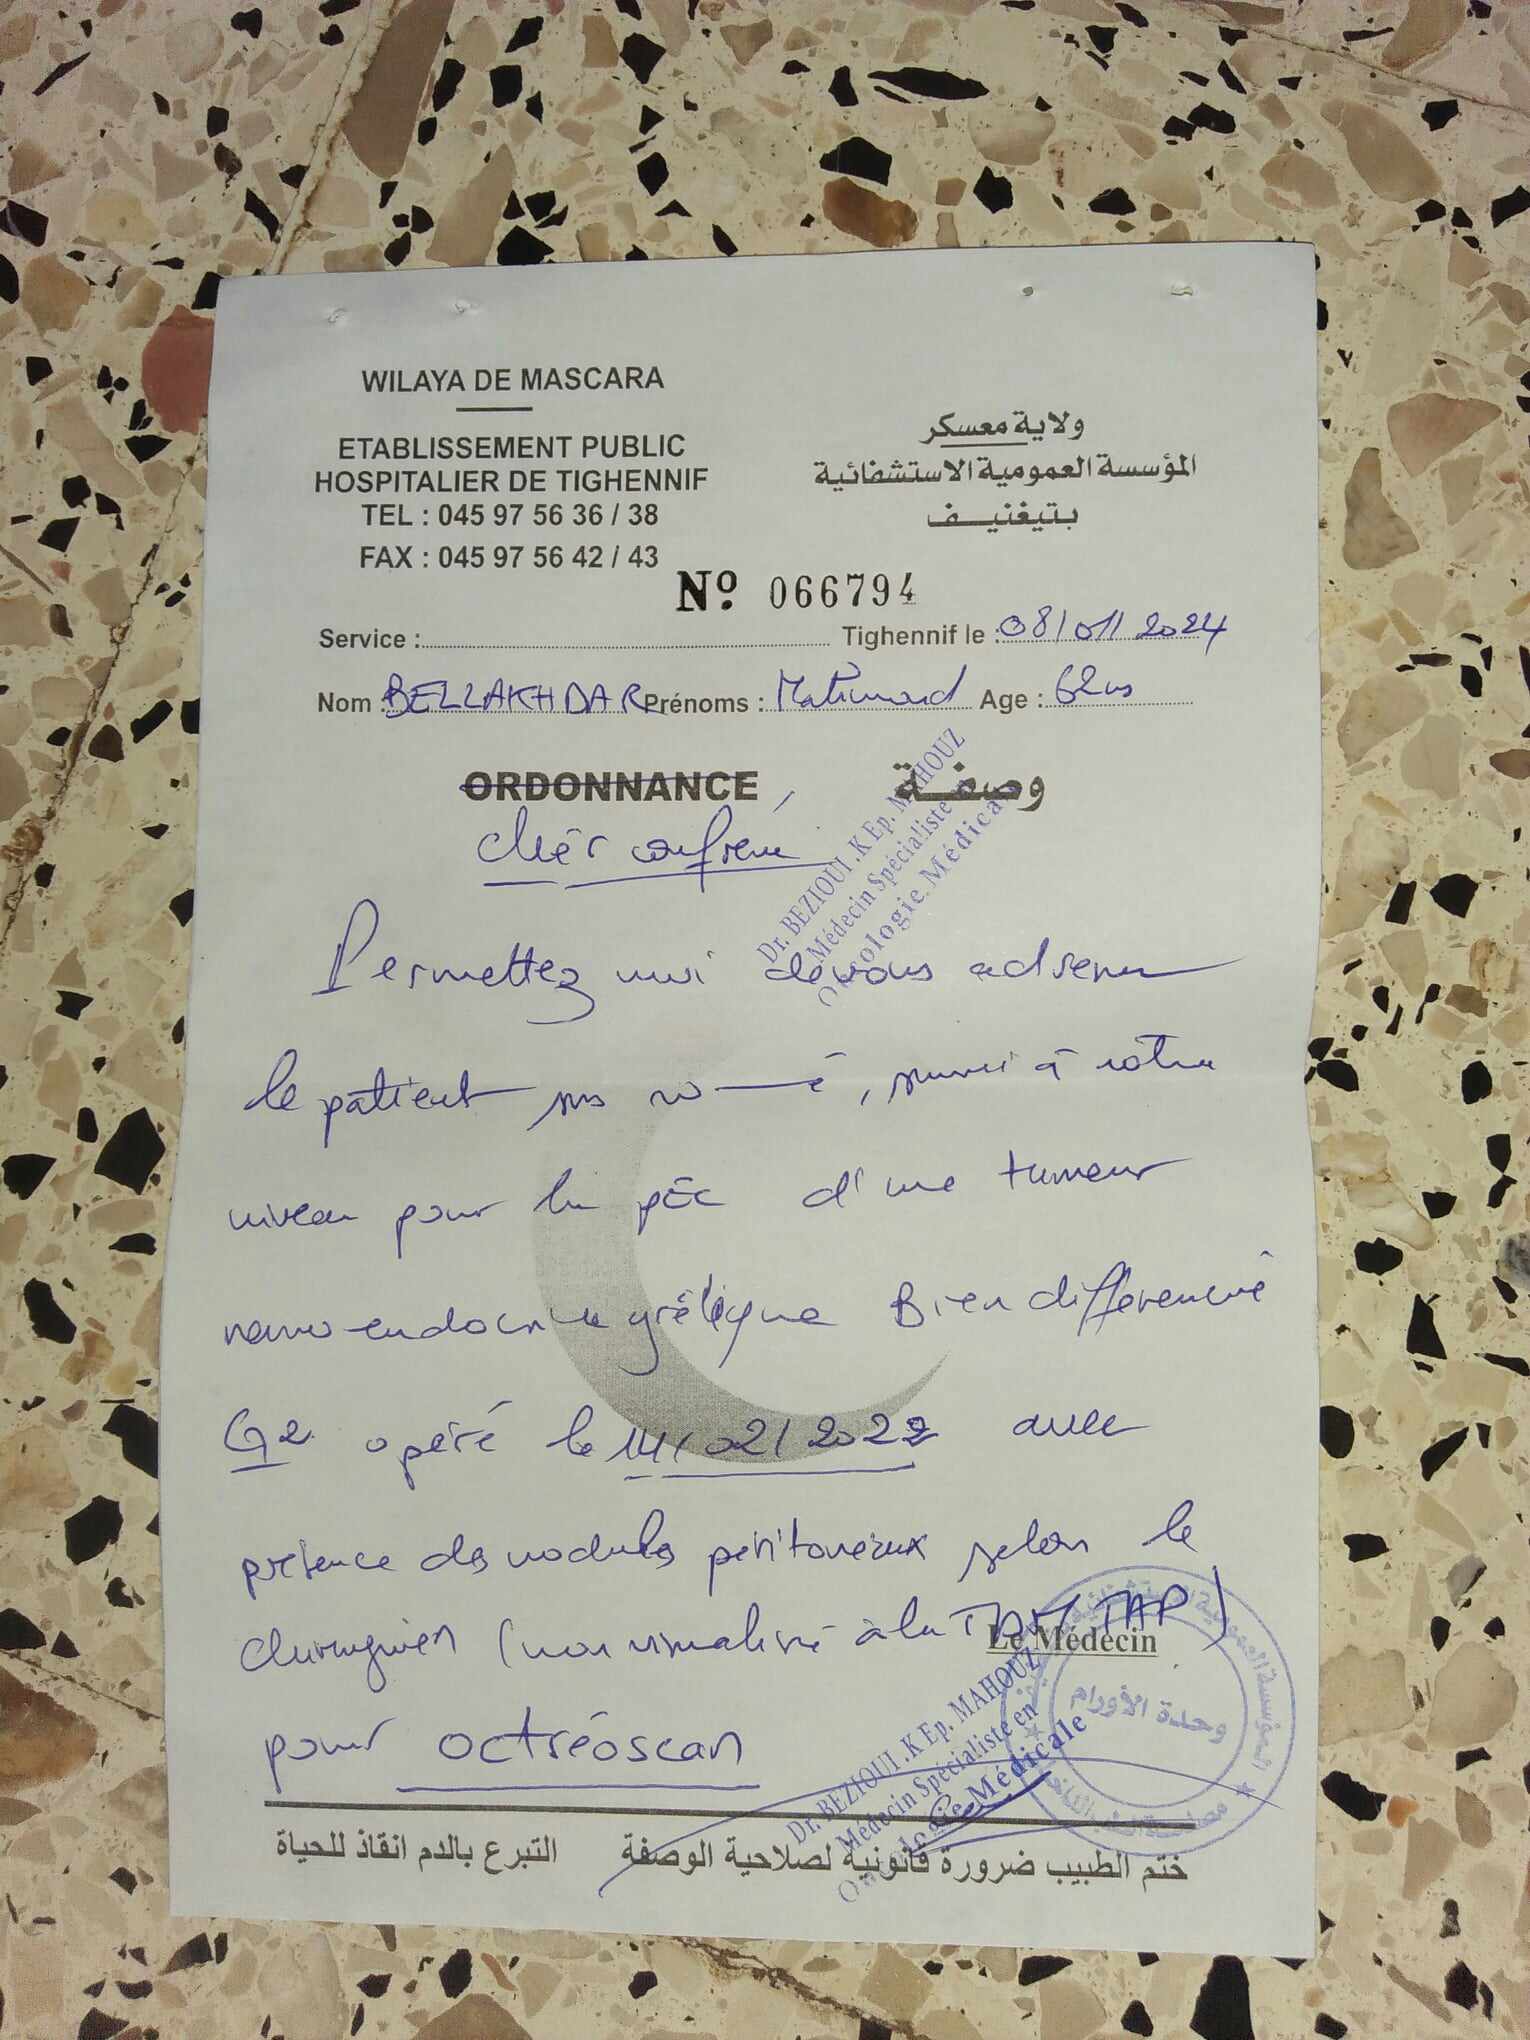 WILAYA DE MASCARA
ETABLISSEMENT PUBLIC
HOSPITALIER DE TIGHENNIF
TEL : 045 97 56 36 / 38
FAX : 045 97 56 42 / 43
ولاية معسكر
المؤسسة العمومية الاستشفائية
بتيغنيف
Nº 066794
Service : Tighennif le : 08/01/2024
Nom : BELLAKHDAR Prénoms : Mahmoud Age : 62ans
ORDONNANCE وصفة
Cher confrère
Dr. BEZIOUI .K Ep. MAHOUZ
Médecin Spécialiste en
Oncologie Médicale
Permettez moi de vous adresser
le patient sus n—é, suivi à notre
niveau pour la pec d'une tumeur
neuro-endocrine grêlique Bien différencié
G2 opéré le 14/02/2022 avec
présence des nodules péritonéaux selon le
chirurgien (non visualisé à la TDM TAP)
pour octréoscan
Le Médecin
Dr. BEZIOUI .K Ep. MAHOUZ
Médecin Spécialiste en
Oncologie Médicale
وحدة الأورام
ختم الطبيب ضرورة قانونية لصلاحية الوصفة التبرع بالدم انقاذ للحياة